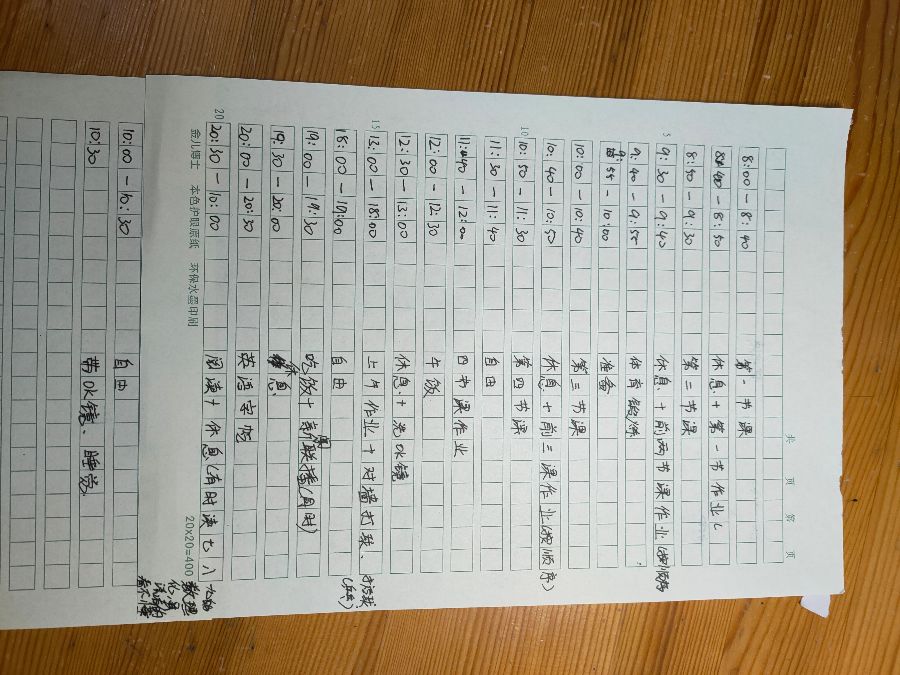 共 页 第 页
8:00-8:40 第一节课
8:40-8:50 休息+第一节作业
8:50-9:30 第二节课
5
9:30-9:40 休息+前两节课作业(按顺序)
9:40-9:55 体育锻炼
9:55-10:00 准备
10:00-10:40 第三节课
10:40-10:50 休息+前三课作业(按顺序)
10
10:50-11:30 第四节课
11:30-11:40 自由
11:40-12:00 四书课作业
12:00-12:30 午饭
12:30-13:00 休息+洗OK镜
15
13:00-18:00 上午作业+对墙打球、打污球
(乒乓)
18:00-19:00 自由
19:00-19:30 吃饭+新闻联播(有时)
19:30-20:00 休息
20:00-20:30 英语字帖
20
20:30-10:00 阅读+休息(有时读七、八、九的
数理
化、
看不懂
金儿博士 本色护眼原纸 环保水墨印刷
20x20=400
10:00-10:30 自由
10:30 带OK镜、睡觉